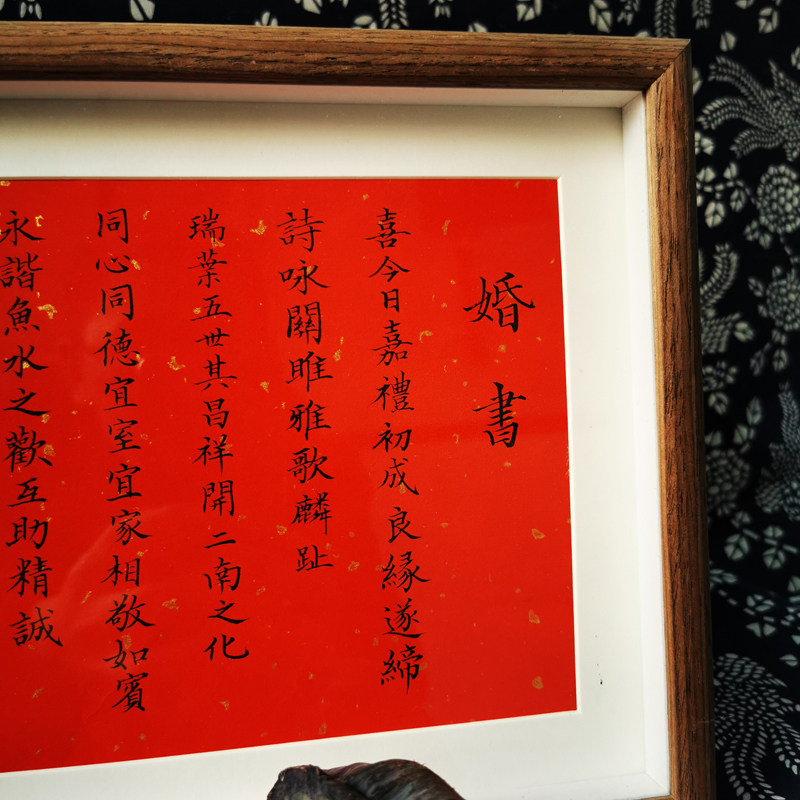 婚書
喜今日嘉禮初成良緣遂締
詩咏關雎雅歌麟趾
瑞葉五世其昌祥開二南之化
同心同德宜室宜家相敬如賓
永諧魚水之歡互助精誠